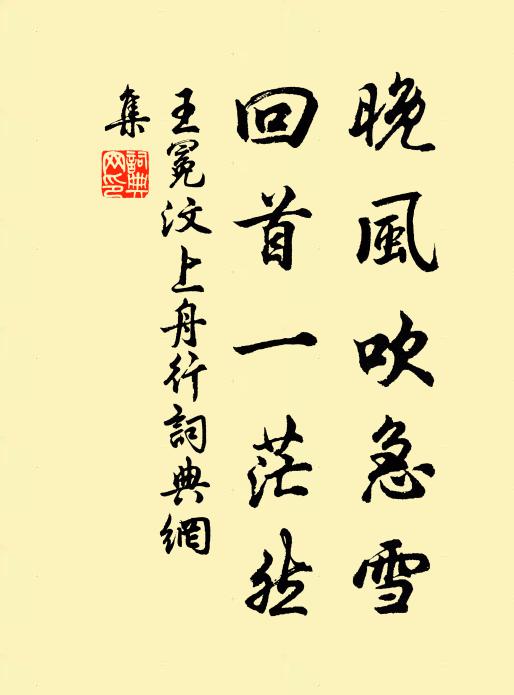 晚風吹急雪
回首一茫然
王冕汶上舟行詞典網
集
詞典
网印